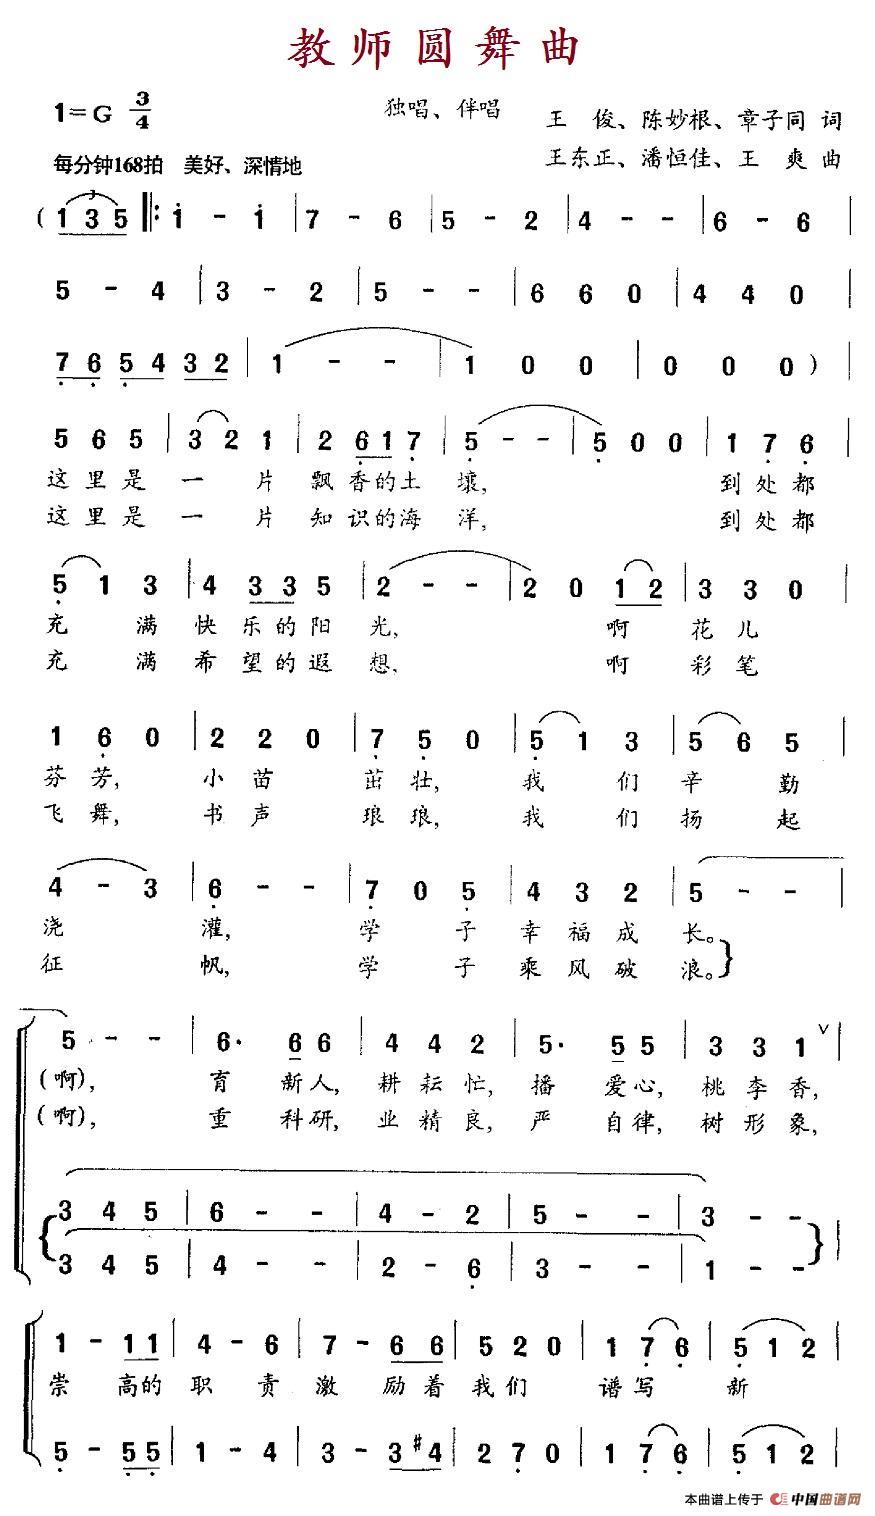 教师圆舞曲
1=G 3/4
独唱、伴唱
王 俊、陈妙根、章子同 词
王东正、潘恒佳、王 爽 曲
每分钟168拍 美好、深情地
( 1 3 5 ‖: 1 - 1 | 7 - 6 | 5 - 2 | 4 - - | 6 - 6 |
5 - 4 | 3 - 2 | 5 - - | 6 6 0 | 4 4 0 |
7 6 5 4 3 2 | 1 - - | 1 0 0 | 0 0 0 ) |
5 6 5 | 3 2 1 | 2 6 1 7 | 5 - - | 5 0 0 | 1 7 6
这里是一片飘香的土壤, 到处都
这里是一片知识的海洋, 到处都
5 1 3 | 4 3 3 5 | 2 - - | 2 0 1 2 | 3 3 0 |
充满快乐的阳光, 啊花儿
充满希望的遐想, 啊彩笔
1 6 0 | 2 2 0 | 7 5 0 | 5 1 3 | 5 6 5 |
芬芳, 小苗茁壮, 我们辛勤
飞舞, 书声琅琅, 我们扬起
4 - 3 | 6 - - | 7 0 5 | 4 3 2 | 5 - - |
浇灌, 学子幸福成长。
征帆, 学子乘风破浪。
5 - - | 6· 6 6 | 4 4 2 | 5· 5 5 | 3 3 1 ∨ |
(啊), 育新人, 耕耘忙, 播爱心, 桃李香,
(啊), 重科研, 业精良, 严自律, 树形象,
3 4 5 | 6 - - | 4 - 2 | 5 - - | 3 - - |
3 4 5 | 4 - - | 2 - 6 | 3 - - | 1 - - |
1 - 1 1 | 4 - 6 | 7 - 6 6 | 5 2 0 | 1 7 6 | 5 1 2 |
崇高的职责激励着我们谱写新
5 - 5 5 | 1 - 4 | 3 - 3 #4 | 2 7 0 | 1 7 6 | 5 1 2 |
本曲谱上传于 中国曲谱网